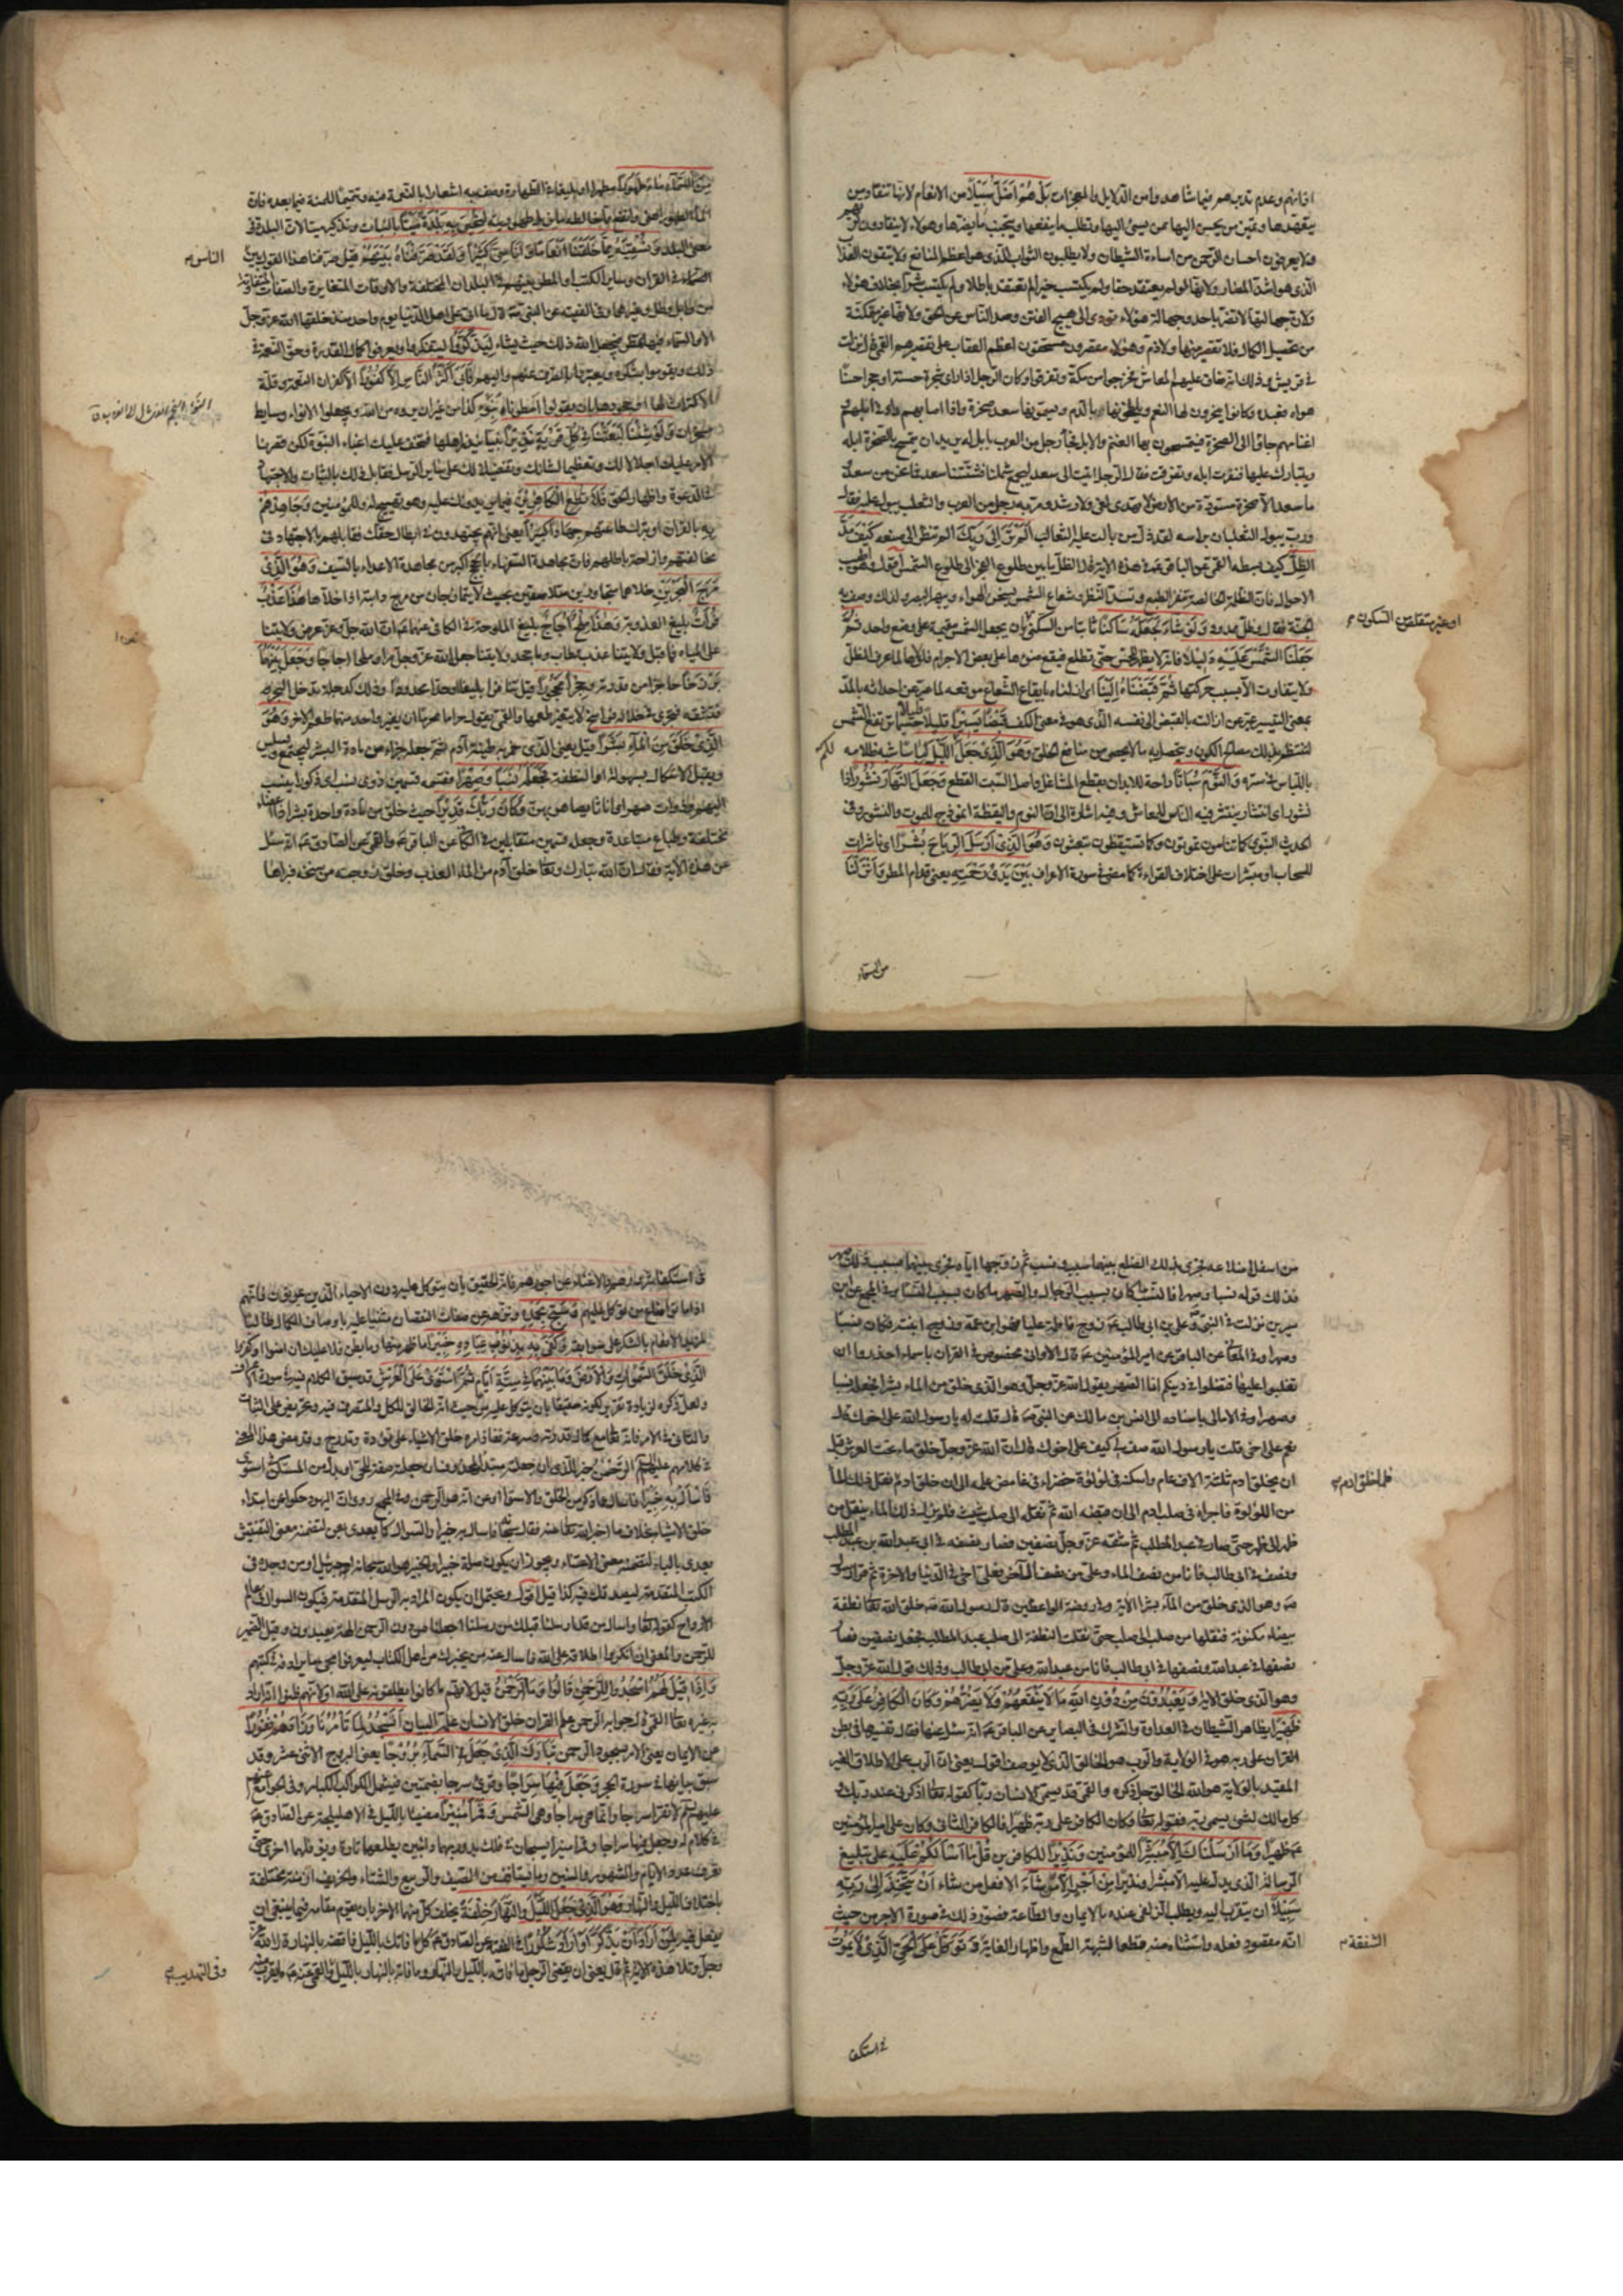 اذانهم وعدم تدبرهم فيما شاهدوا من الدلايل والمعجزات بَلْ هُمْ اَضَلُّ سَبِيلًا من الانعام لانها تنقاد من
يتعهدها وتميز من يحسن اليها ممن يسئ اليها وتطلب ما ينفعها ويتجنب ما يضرها وهؤلاء لا ينقادون لربهم
ولا يعرفون احسان الرحمن من اساءة الشيطان ولا يطلبون الثواب الذى هو اعظم المنافع ولا يتقون العقاب
الذى هو اشد المضار ولانها لو لم يعتقد حقا ولم يكتسب خيرا لم تعتقد باطلا ولم يكتسب شرا بخلاف هؤلاء
ولان جهالتها لا تضر باحد وجهالة هؤلاء تودى الى هيج الفتن وصد الناس عن الحق ولانها غير متمكنة
من تحصيل الكمال فلا تقصير منها ولا ذم وهؤلاء مقصرون مستحقون اعظم العقاب على تقصيرهم القمى نزلت
فى قريش وذلك انه ضاق عليهم المعاش فخرجوا من مكة وتفرقوا وكان الرجل اذا راى شجرة حسنة او حجرا حسنا
هواه فعبده وكانوا ينحرون لها النعم ويلطخونها بالدم ويسمونها سعد صخرة واذا اصابهم داء فى ابلهم
اغنامهم جاؤا الى الصخرة فيتمسحون بها الغنم والابل فجاء رجل من العرب بابل له يريدان يتمسح بالصخرة ابله
ويتبارك عليها فنفرت ابله وتفرقت فقال الرجل اتيت الى سعد ليجمع شملنا فشتتنا سعد فما نحن من سعد
ما سعد الا صخرة مستوية من الارض لا تهدى لغى ولا رشد ومر به رجل من العرب والثعلب يبول عليه فقال
ورب يبول الثعلبان براسه لقد ذل من بالت عليه الثعالب اَلَمْ تَرَ اِلَى رَبِّكَ الم تنظر الى صنعه كَيْفَ مَدَّ
الظِّلَّ كيف بسطه القمى عن الباقر ع فى هذه الاية قال الظل ما بين طلوع الفجر الى طلوع الشمس اقول وهو اطيب
الاحوال فان الظلمة الخالصة تنفر الطبع وتسد النظر وشعاع الشمس يسخن الهواء ويبهر البصر ولذلك وصف به
الجنة فقال وظل ممدود وَلَوْ شَاءَ لَجَعَلَهُ سَاكِنًا ثابتا من السكنى بان يجعل الشمس مقيمة على وضع واحد ثُمَّ
او غير متقلص من السكون
جَعَلْنَا الشَّمْسَ عَلَيْهِ دَلِيلًا فانه لا يظهر للحس حتى تطلع فيقع ضوءها على بعض الاجرام فلولاها لما عرف الظل
ولا يتفاوت الا بسبب حركتها ثُمَّ قَبَضْنَاهُ اِلَيْنَا اى ازلناه بايقاع الشعاع موقعه لما عبر عن احداثه بالمد
بمعنى التيسير عبر عن ازالته بالقبض الى نفسه الذى هو فى معنى الكف قَبْضًا يَسِيرًا قليلا قليلا حسبما ترتفع الشمس
لتنتظم بذلك مصالح الكون ويتحصل به ما لا يحصى من منافع الخلق وَهُوَ الَّذِى جَعَلَ اللَّيْلَ لِبَاسًا شبه ظلامه
لكم
باللباس فى ستره وَالنَّوْمَ سُبَاتًا راحة للابدان بقطع المشاغل واصل السبت القطع وَجَعَلَ النَّهَارَ نُشُورًا ذا
نشور اى انتشار ينتشر فيه الناس للمعاش وفيه اشارة الى ان النوم واليقظة انموذج للموت والنشور وفى
الحديث النبوى كما تنامون تموتون وكما تستيقظون تبعثون وَهُوَ الَّذِى اَرْسَلَ الرِّيَاحَ بُشْرًا اى ناشرات
للسحاب او مبشرات على اختلاف القراءة كما مضى فى سورة الاعراف بَيْنَ يَدَىْ رَحْمَتِهِ يعنى قدام المطر وَاَنْزَلْنَا
من السماء
مِنَ السَّمَاءِ مَاءً طَهُورًا مطهرا او بليغا فى الطهارة وصف به اشعارا بالنعمة فيه وتتميما للمنة فيما بعده فان
الماء الطهور اهنى وانفع مما خالطه ما يزيل طهوريته لِنُحْيِىَ بِهِ بَلْدَةً مَيْتًا بالنبات وتذكير ميتا لان البلدة فى
معنى البلد وَنُسْقِيَهُ مِمَّا خَلَقْنَا اَنْعَامًا وَاَنَاسِىَّ كَثِيرًا وَلَقَدْ صَرَّفْنَاهُ بَيْنَهُمْ قيل صرفنا هذا القول بين
الناس
فى القران وساير الكتب او المطر بينهم فى البلدان المختلفة والاوقات المتغايرة والصفات المتفاوتة
من وابل وطل وغيرهما وفى الفقيه عن النبى ص قال ما اتى على اهل الدنيا يوم واحد منذ خلقها الله عز وجل
الا والسماء فيها تمطر فيجعل الله ذلك حيث يشاء لِيَذَّكَّرُوا ليتفكروا ويعرفوا كمال القدرة وحق النعمة فى
ذلك ويقوموا بشكره ويعتبروا بالصرف عنهم واليهم فَاَبَى اَكْثَرُ النَّاسِ اِلَّا كُفُورًا الا كفران النعمة وقلة
الاكتراث لها او جحودها بان يقولوا امطرنا بنوء كذا من غيران يروه من الله ويجعلوا الانواء وسايط
مسخرات وَلَوْ شِئْنَا لَبَعَثْنَا فِى كُلِّ قَرْيَةٍ نَذِيرًا نبيا ينذر اهلها فيخف عليك اعباء النبوة لكن قصرنا
الامر عليك اجلالا لك وتعظيما لشانك وتفضيلا لك على ساير الرسل فقابل ذلك بالثبات والاجتهاد
فى الدعوة واظهار الحق فَلَا تُطِعِ الْكَافِرِينَ فيما يريدونك عليه وهو تهييج له وللمؤمنين وَجَاهِدْهُمْ
بِهِ بالقران او بترك طاعتهم جِهَادًا كَبِيرًا يعنى انهم يجتهدون فى ابطال حقك فقابلهم بالاجتهاد فى
مخالفتهم وازاحة باطلهم فان مجاهدة السفهاء بالحجج اكبر من مجاهدة الاعداء بالسيف وَهُوَ الَّذِى
مَرَجَ الْبَحْرَيْنِ خلاهما متجاورين متلاصقين بحيث لا يتمازجان من مرج دابته اذا خلاها هَذَا عَذْبٌ
فُرَاتٌ بليغ العذوبة وَهَذَا مِلْحٌ اُجَاجٌ بليغ الملوحة فى الكافى عنهما ع ان الله جل وعز عرض ولايتنا
على المياه فما قبل ولايتنا عذب وطاب وما جحد ولايتنا جعله الله عز وجل مرا وملحا اجاجا وَجَعَلَ بَيْنَهُمَا
بَرْزَخًا حاجزا من قدرته وَحِجْرًا مَحْجُورًا قيل تنافرا بليغا او حدا محدودا وذلك كدجلة تدخل البحر
فتشقه فتجرى فى خلاله فراسخ لا يتغير طعمها والقمى يقول حراما محرما ان يغير واحد منهما طعم الاخر وَهُوَ
الَّذِى خَلَقَ مِنَ الْمَاءِ بَشَرًا قيل يعنى الذى خمر به طينة آدم ثم جعله جزءا من مادة البشر ليجتمع ويسلس
ويقبل الاشكال بسهولة او النطفة فَجَعَلَهُ نَسَبًا وَصِهْرًا فقسمه قسمين ذوى نسب اى ذكورا ينسب
اليهم وذوات صهر اى اناثا يصاهر بهن وَكَانَ رَبُّكَ قَدِيرًا حيث خلق من مادة واحدة بشرا ذا اعضاء
مختلفة وطباع متباعدة وجعله قسمين متقابلين فى الكافى عن الباقر ع والقمى عن الصادق ع انه سئل
عن هذه الاية فقال ان الله تبارك وتعالى خلق آدم من الماء العذب وخلق زوجته من سنخه فبراها
من اسفل اضلاعه فجرى بذلك الضلع بينهما سبب ونسب ثم زوجها اياه فجرى بينهما بسبب ذلك صهر
فذلك قوله نسبا وصهرا فالنسب ما كان بسبب الرجال والصهر ما كان بسبب النساء وفى المجمع عن ابن
سيرين نزلت فى النبى وعلى بن ابى طالب ع زوج فاطمة عليا فهو ابن عمه وزوج ابنته فكان نسبا
وصهرا وفى المعانى عن الباقر عن امير المؤمنين ع قال الا وانى مخصوص فى القران باسماء احذروا ان
تغلبوا عليها فتضلوا فى دينكم انا الصهر يقول الله عز وجل وهو الذى خلق من الماء بشرا فجعله نسبا
وصهرا وفى الامالى باسناده الى انس بن مالك عن النبى ص قال قلت له يا رسول الله على اخوك قال
نعم على اخى قلت يا رسول الله صف لى كيف على اخوك قال ان الله عز وجل خلق ماء تحت العرش قبل
ان يخلق ادم بثلثة الاف عام واسكنه فى لؤلؤة خضراء فى غامض علمه الى ان خلق ادم نقل ذلك الماء
فلما خلق ادم
من اللؤلؤة فاجراه فى صلب ادم الى ان قبضه الله ثم نقله الى صلب شيث فلم يزل ذلك الماء ينقل من
ظهر الى ظهر حتى صار فى عبد المطلب ثم شقه عز وجل نصفين فصار نصفه فى ابى عبد الله بن عبد المطلب
ونصف فى ابى طالب فانا من نصف الماء وعلى من نصف الاخر فعلى اخى فى الدنيا والاخرة ثم قرا رسول
ص وهو الذى خلق من الماء بشرا الاية وفى روضة الواعظين قال رسول الله ص خلق الله تعالى نطفة
بيضاء مكنونة فنقلها من صلب الى صلب حتى نقلت النطفة الى صلب عبد المطلب فجعل نصفين فصار
نصفها فى عبد الله ونصفها فى ابى طالب فانا من عبد الله وعلى من ابى طالب وذلك قول الله عز وجل
وهو الذى خلق الاية وَيَعْبُدُونَ مِنْ دُونِ اللَّهِ مَا لَا يَنْفَعُهُمْ وَلَا يَضُرُّهُمْ وَكَانَ الْكَافِرُ عَلَى رَبِّهِ
ظَهِيرًا يظاهر الشيطان فى العداوة والشرك فى البصاير عن الباقر ع انه سئل عنها فقال تفسيرها فى بطن
القران على ربه هو فى الولاية والرب هو الخالق الذى لا يوصف اقول يعنى ان الرب على الاطلاق الغير
المقيد بالولاية هو الله الخالق جل ذكره والقمى قد يسمى الانسان ربا كقوله تعالى اذكرنى عند ربك و
كل مالك لشئ يسمى ربه فقوله تعالى وكان الكافر على ربه ظهيرا فالكافر الثانى وكان على امير المؤمنين
ع ظهيرا وَمَا اَرْسَلْنَاكَ اِلَّا مُبَشِّرًا للمؤمنين وَنَذِيرًا للكافرين قُلْ مَا اَسْأَلُكُمْ عَلَيْهِ على تبليغ
الرسالة الذى يدل عليه الا مبشرا ونذيرا مِنْ اَجْرٍ اِلَّا مَنْ شَاءَ الا فعل من شاء اَنْ يَتَّخِذَ اِلَى رَبِّهِ
سَبِيلًا ان يتقرب اليه ويطلب الزلفى عنده بالايمان والطاعة فصور ذلك فى صورة الاجر من حيث
انه مقصود فعله واستثناه منه قطعا لشبهة الطمع واظهارا لغاية وَتَوَكَّلْ عَلَى الْحَىِّ الَّذِى لَا يَمُوتُ
الشفقة
فى استكفا
فى استكفاء شرورهم والاغناء عن اجورهم فانه الحقيق بان يتوكل عليه دون الاحياء الذين يموتون فانهم
اذا ماتوا ضاع من توكل عليهم وَسَبِّحْ بِحَمْدِهِ ونزهه عن صفات النقصان مثنيا عليه باوصاف الكمال طالبا
لمزيد الانعام بالشكر على سوابغه وَكَفَى بِهِ بِذُنُوبِ عِبَادِهِ خَبِيرًا ما ظهر منها وما بطن فلا عليك ان امنوا او كفروا
الَّذِى خَلَقَ السَّمَوَاتِ وَالْاَرْضَ وَمَا بَيْنَهُمَا فِى سِتَّةِ اَيَّامٍ ثُمَّ اسْتَوَى عَلَى الْعَرْشِ قد سبق الكلام فيه فى سورة الاعراف
ولعل ذكره لزيادة تقرير لكونه حقيقا بان يتوكل عليه من حيث انه الخالق للكل والمتصرف فيه وتحريض على الثبات
والتانى فى الامر فانه تعالى مع كمال قدرته وسرعة نفاذ امره خلق الاشياء على تؤدة وتدرج
فى كلامهم عليهم السلم الرَّحْمَنُ خبر للذى ان جعلته مبتدا ولمحذوف ان جعلته صفة للحى او بدل من المستكن فى استوى
فَاسْأَلْ بِهِ خَبِيرًا فاسال عما ذكر من الخلق والاستواء او عن انه هو الرحمن وفى المجمع روى ان اليهود حكوا عن ابتداء
خلق الاشياء بخلاف ما اخبر الله تعالى عنه فقال سبحانه فاسال به خبيرا والسوال كما يعدى بعن لتضمنه معنى التفتيش
يعدى بالباء لتضمنه معنى الاعتناء ويجوز ان يكون صلة خبيرا والخبير هو الله سبحانه او جبرئيل او من وجده فى
الكتب المتقدمة ليصدقك فيه كذا قيل اقول ويحتمل ان يكون المراد به الرسل المتقدمة فيكون السوال فى عالم
الارواح كقوله تعالى واسال من قد ارسلنا قبلك من رسلنا اجعلنا من دون الرحمن الهة يعبدون وقيل الضمير
للرحمن والمعنى ان انكروا اطلاقه على الله فاسال عنه من يخبرك من اهل الكتاب ليعرفوا مجئ ما يرادفه فى كتبهم
وَاِذَا قِيلَ لَهُمُ اسْجُدُوا لِلرَّحْمَنِ قَالُوا وَمَا الرَّحْمَنُ قيل لانهم ما كانوا يطلقونه على الله او لانهم ظنوا انه اراد
به غيره تعالى القمى قال جوابه الرحمن علم القران خلق الانسان علمه البيان اَنَسْجُدُ لِمَا تَأْمُرُنَا وَزَادَهُمْ نُفُورًا
عن الايمان يعنى الامر بسجود الرحمن تَبَارَكَ الَّذِى جَعَلَ فِى السَّمَاءِ بُرُوجًا يعنى البروج الاثنى عشر وقد
سبق بيانها فى سورة الحجر وَجَعَلَ فِيهَا سِرَاجًا وقرئ سرجا بضمتين فيشمل الكواكب الكبار وفى الجوامع عنهم
عليهم السلم لا تقرا سراجا وانما هى سرجا وهى الشمس وَقَمَرًا مُنِيرًا مضيئا بالليل فى الاهليلجة عن الصادق ع
فى كلام له وجعل فيها سراجا وقمرا منيرا يسبحان فى فلك يدور بهما دائبين يطلعهما تارة ويؤفلهما اخرى حتى
تعرف عدة الايام والشهور والسنين وما يستانف من الصيف والربيع والشتاء والخريف ازمنة مختلفة
باختلاف الليل والنهار وَهُوَ الَّذِى جَعَلَ اللَّيْلَ وَالنَّهَارَ خِلْفَةً يخلف كل منهما الاخر بان يقوم مقامه فيما ينبغى ان
يفعل فيه لِمَنْ اَرَادَ اَنْ يَذَّكَّرَ اَوْ اَرَادَ شُكُورًا فى الفقيه عن الصادق ع كل ما فاتك بالليل فاقضه بالنهار قال الله عز
وجل وتلا هذه الاية ثم قال يعنى ان يقضى الرجل ما فاته بالليل بالنهار وما فاته بالنهار بالليل والقمى عنه ع ما يقرب منه
وفى التهذيب